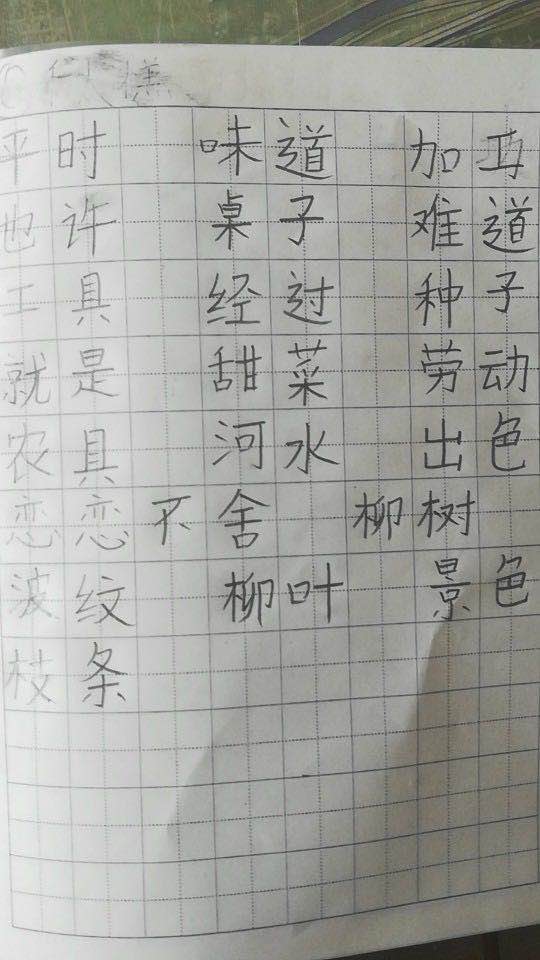 平时 味道 加再
也许 桌子 难道
工具 经过 种子
就是 甜菜 劳动
农具 河水 出色
恋恋不舍 柳树
波纹 柳叶 景色
枝条